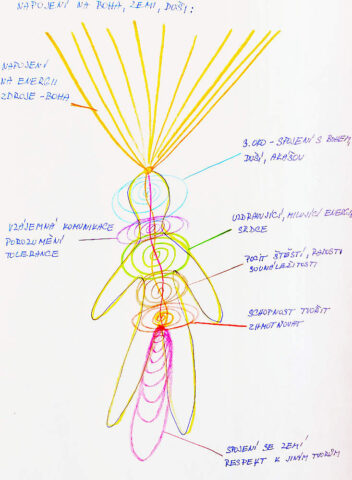 NAPOJENÍ NA BOHA, ZEMI, DUŠI:
NAPOJENÍ
NA ENERGII
ZDROJE - BOHA
3. OKO - SPOJENÍ S BOHEM,
DUŠÍ, AKÁŠOU
VZÁJEMNÁ KOMUNIKACE
POROZUMĚNÍ
TOLERANCE
UZDRAVUJÍCÍ, MILUJÍCÍ ENERGIE
SRDCE
POCIT ŠTĚSTÍ, RADOSTI
SOUNÁLEŽITOSTI
SCHOPNOST TVOŘIT
ZHMOTŇOVAT
SPOJENÍ SE ZEMÍ
RESPEKT K JINÝM TVORŮM